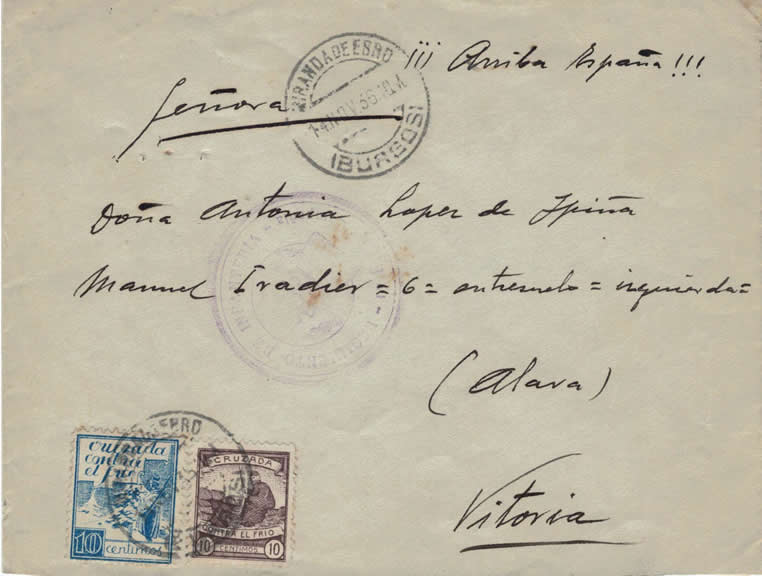 MIRANDA DE EBRO
14 NOV. 36. 10 M
(BURGOS)
¡¡¡ Arriba España!!!
Señora
Doña Antonia Lopez de Ipiña
Manuel Iradier = 6 = entresuelo = izquierda =
(Alava)
Vitoria
REGIMIENTO DE INFANTERIA
DE EBRO
cruzada
contra
el frio
10 centimos
CRUZADA
CONTRA EL FRIO
10 CENTIMOS 10